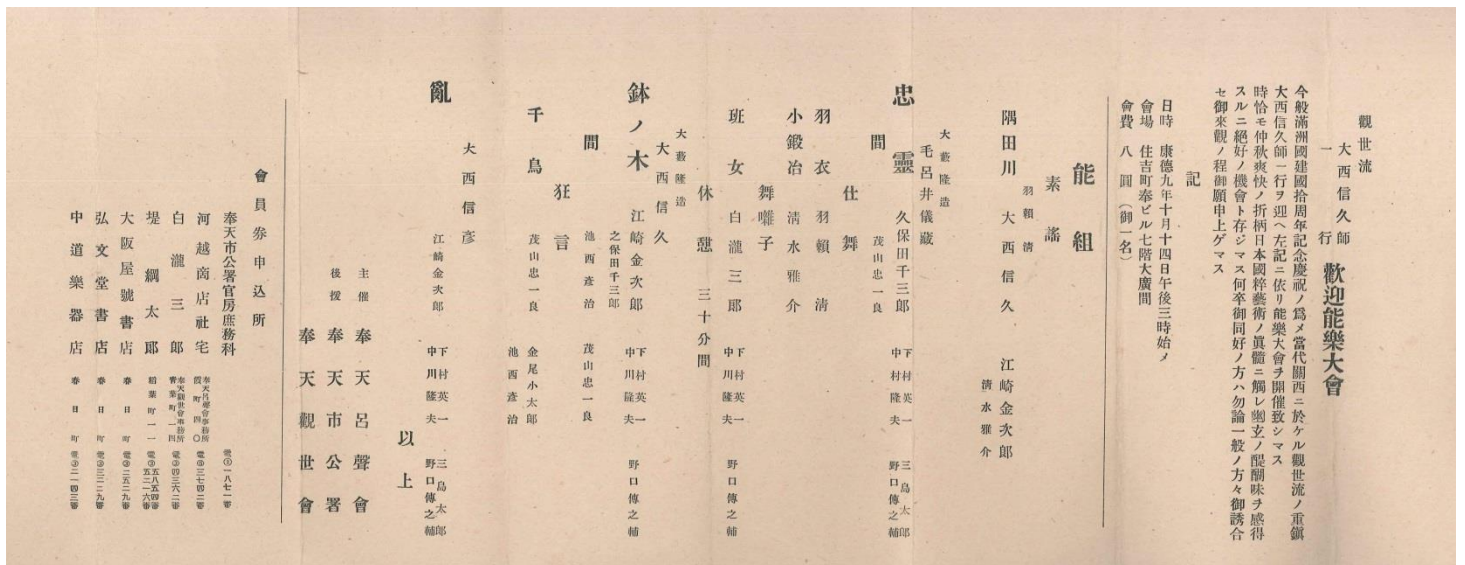 觀世流
大西信久師
一行
歡迎能樂大會
今般滿洲國建國拾周年記念慶祝ノ爲メ當代關西ニ於ケル觀世流ノ重鎭
大西信久師一行ヲ迎ヘ左記ニ依リ能樂大會ヲ開催致シマス
時恰モ仲秋爽快ノ折柄日本國粹藝術ノ眞髓ニ觸レ幽玄ノ醍醐味ヲ感得
スルニ絕好ノ機會ト存ジマス何卒御同好ノ方ハ勿論一般ノ方々御誘合
セ御來觀ノ程御願申上ゲマス
記
日時 康德九年十月十四日午後三時始メ
會場 住吉町奉ビル七階大廣間
會費 八圓(御一名)
能組
素謠
羽賴淸
隅田川 大西信久 江崎金次郎
淸水雅介
大藪隆造
毛呂井儀藏
忠靈 久保田千三郎 下村英一 三島太郎
中村隆夫 野口傳之輔
間 茂山忠一良
仕舞
羽衣 羽賴淸
小鍛冶 淸水雅介
舞囃子
班女 白瀧三郎 下村英一
中川隆夫 野口傳之輔
休憩 三十分間
大藪隆造
大西信久
鉢ノ木 江崎金次郎 下村英一
中川隆夫 野口傳之輔
之保田千三郎
間 池西彥治 茂山忠一良
狂言
千鳥 茂山忠一良 金尾小太郎
池西彥治
大西信彥
亂 江崎金次郎 下村英一 三島太郎
中川隆夫 野口傳之輔
以上
主催 奉天呂聲會
後援 奉天市公署
奉天觀世會
會員券申込所
奉天市公署官房庶務科 電③一八七一番
河越商店社宅 奉天呂聲會事務所
霞町四〇 電⑥三七四二番
白瀧三郎 奉天觀世會事務所
靑葉町一四 電②四三六二番
堤綱太郞 稻葉町一一 電③五八五四番
五二一六番
大阪屋號書店 春日町 電③二五二九番
弘文堂書店 春日町 電③三三二九番
中道樂器店 春日町 電③二一四三番